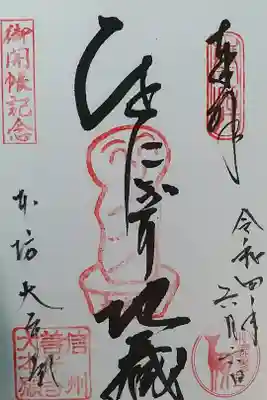 奉拝
令和四年
六月六日
ひとにぎり地蔵
御開帳記念
本坊 大本願
信州
善光寺
大本願